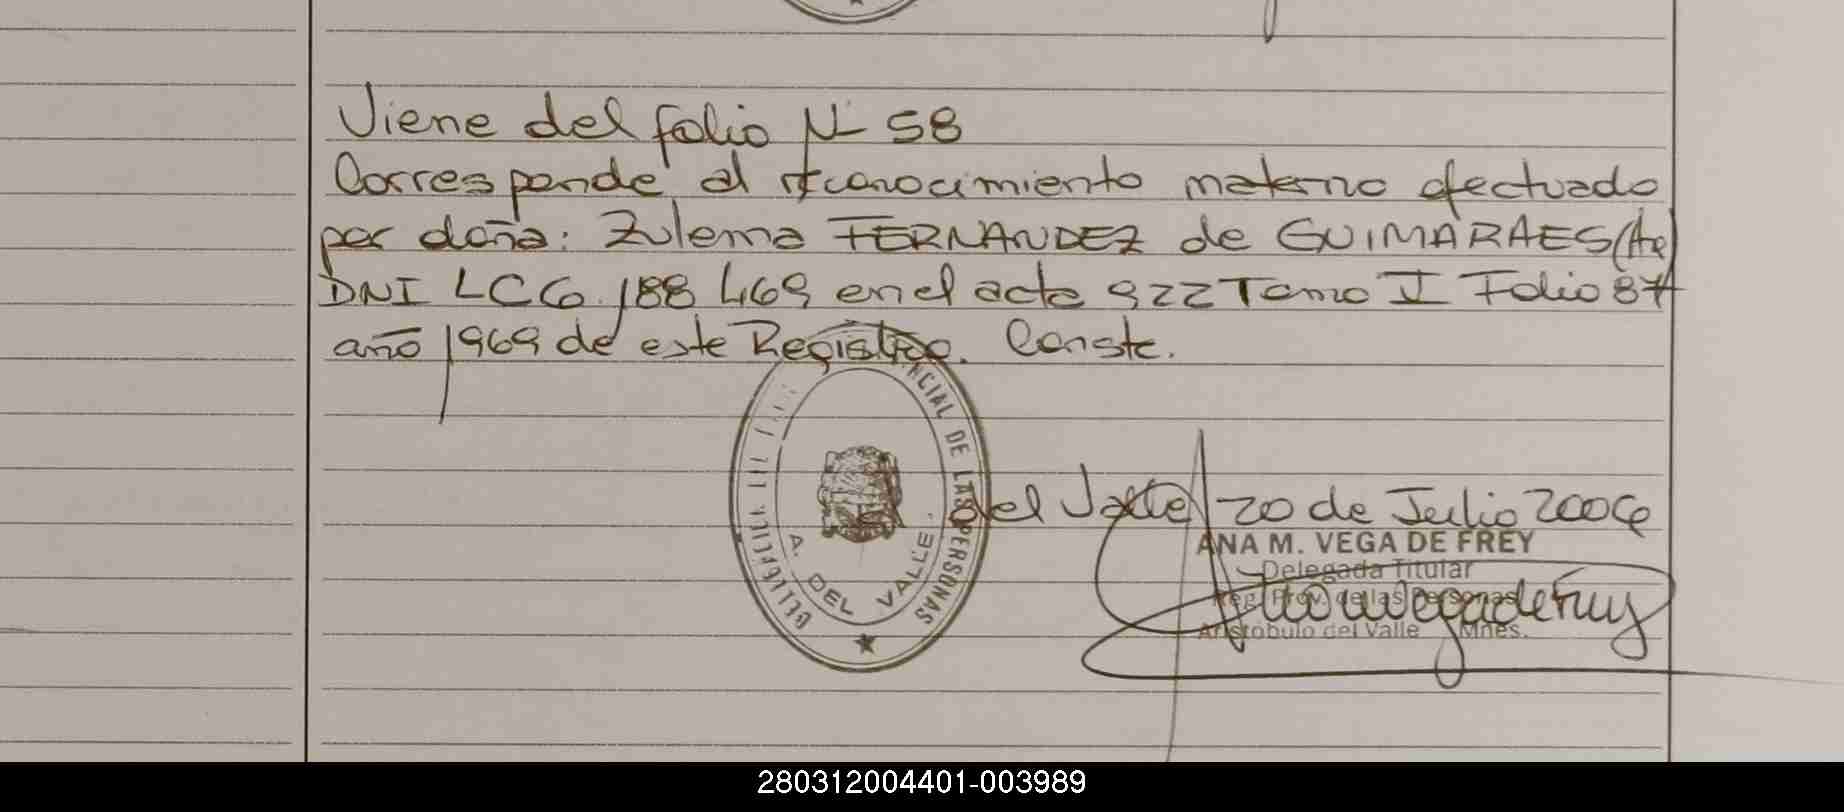 Viene del folio Nº 58
Corresponde al reconocimiento materno efectuado
por doña: Zulema FERNANDEZ de GUIMARAES
DNI LC 6.188.469 en el acta 922 Tomo V Folio 87
año 1969 de este Registro. Conste.
CIAL DE LAS PERSONAS
A. DEL VALLE
del Valle, 20 de Julio 2006
ANA M. VEGA DE FREY
Delegada Titular
Reg. Prov. de las Personas
Aristóbulo del Valle Mnes.
280312004401-003989